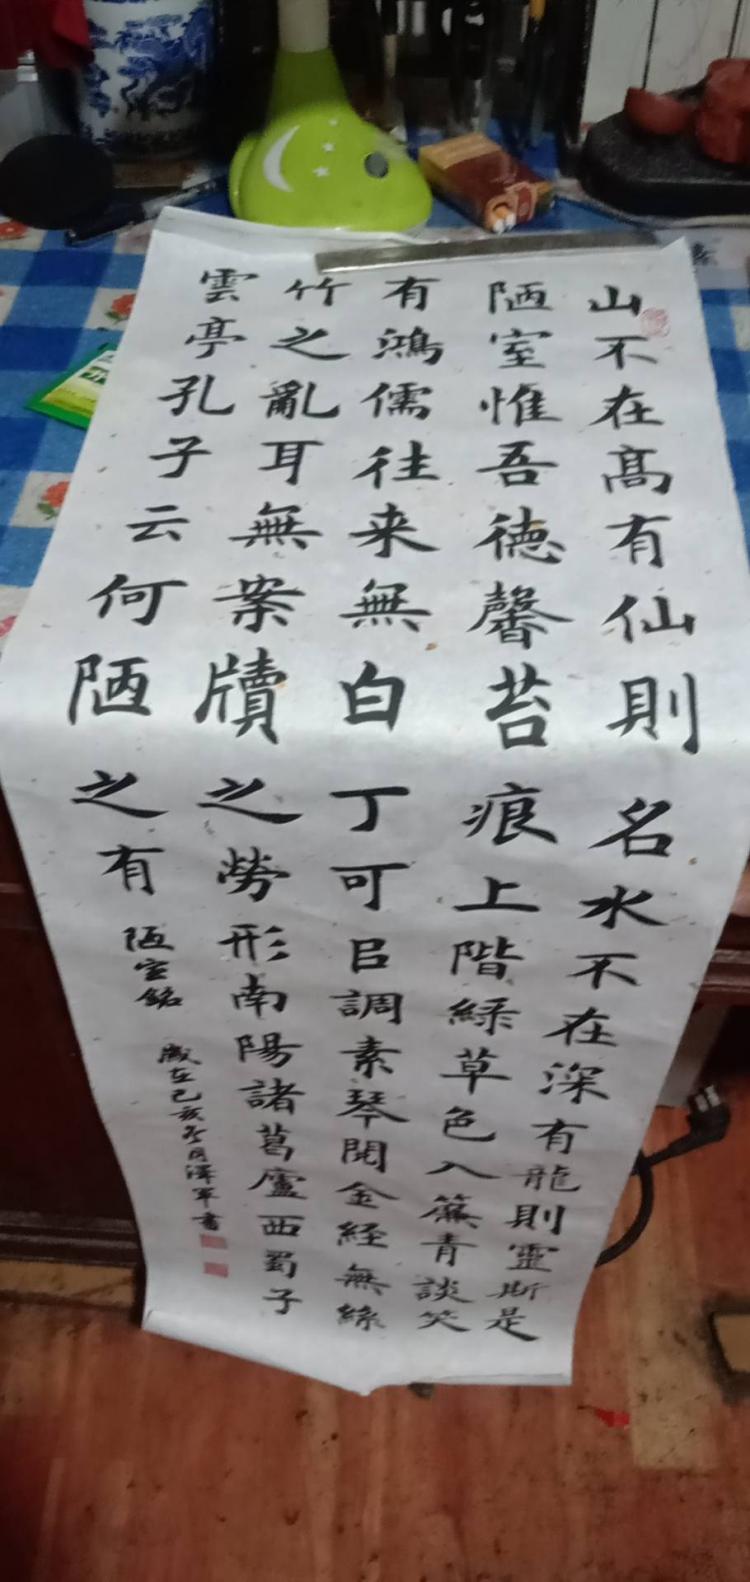 山不在髙有仙則名水不在深有龍則靈斯是
陋室惟吾徳馨苔痕上階緑草色入簾青談笑
有鴻儒往来無白丁可㠯調素琴閱金経無絲
竹之亂耳無案牘之勞形南陽諸葛廬西蜀子
雲亭孔子云何陋之有 陋室銘 歲在己亥冬月澤軍書